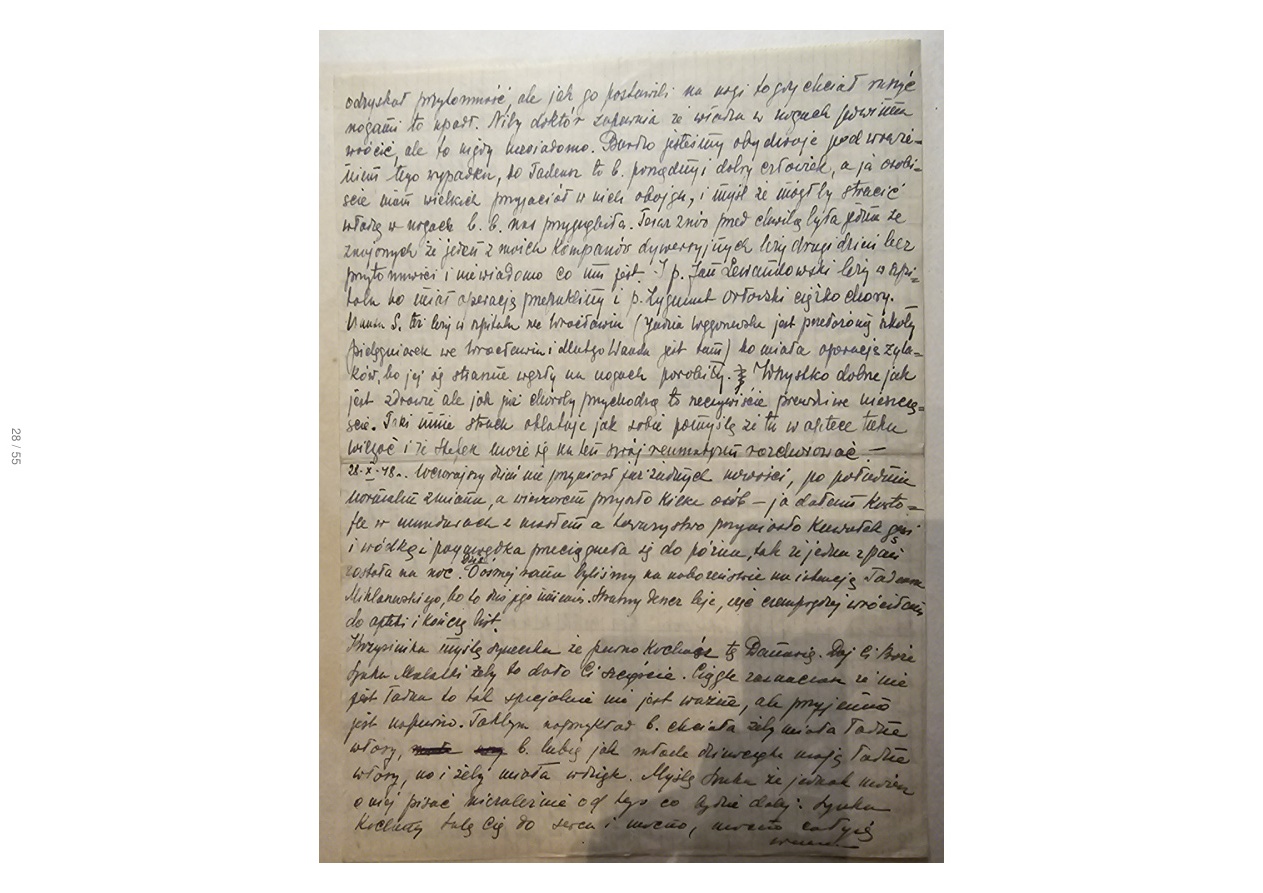 odzyskał przytomność, ale jak go postawili na nogi to gdy chciał ruszyć
nogami to upadł. Niby doktór zapewnia że władza w nogach powinna
wrócić, ale to nigdy niewiadomo. Bardzo jesteśmy obydwoje pod wraże-
niem tego wypadku, bo Tadeusz to b. porządny i dobry człowiek, a ja osobi-
ście mam wielkich przyjaciół w nich obojgu, i myśl że mógłby stracić
władzę w nogach b. b. nas przygnębiła. Teraz znów przed chwilą była jedna ze
znajomych że jeden z moich kompanów dywersyjnych leży drugi dzień bez
przytomności i niewiadomo co mu jest. I p. Jan Lewandowski leży w szpi-
talu bo miał operację przepukliny i p. Zygmunt Orłowski ciężko chory.
Wanda S. też leży w szpitalu we Wrocławiu (Jadzia Węgrowska jest przełożoną szkoły
pielęgniarek we Wrocławiu i dlatego Wanda jest tam) bo miała operację żyla-
ków, bo jej się straszne węzły na nogach porobiły. Wszystko dobre jak
jest zdrowie ale jak już choroby przychodzą to rzeczywiście prawdziwe nieszczę-
ście. Taki mnie strach oblatuje jak sobie pomyślę że tu w aptece tak
wilgoć i że Stefek może się na ten swój reumatyzm rozchorować. —
28.X.48. Wczorajszy dzień nie przyniósł już żadnych nowości, po południu
normalna zmiana, a wieczorem przyszło kilka osób — ja dałam karto-
fle w mundurach z masłem a towarzystwo przyniosło kawałek gęsi
i wódkę i pogawędka przeciągnęła się do późna, tak że jedna z pań
została na noc. Dziś o ósmej rano byliśmy na nabożeństwie na intencję Tadeusza
Miklaszewskiego, bo to dziś jego imieniny. Straszny deszcz leje, więc czemprędzej wróciłam
do apteki i kończę list.
Krzysieńka myślę syneczku że pewno kochasz tę Danusię. Daj Ci Boże
synku Malutki żeby to dało Ci szczęście. Ciągle zaznaczasz że nie
jest ładna to tak specjalnie nie jest ważne, ale przyjemne
jest napewno. Tak bym naprzykład b. chciała żeby miała ładne
włosy, b. lubię jak młode dziewczęta mają ładne
włosy, no i żeby miała wdzięk. Myślę synku że jednak możesz
o niej pisać niezależnie od tego co będzie dalej. Synku
Kochany tulę Cię do serca i mocno, mocno całuję